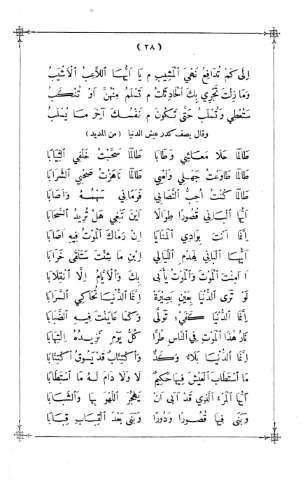 ( ٢٨ )
إلى كم تدافع نهي المشيب م يا أيها اللاعب الأشيب
وما زلت تجري بك الحادثات م تسلم منهن أو تنكب
ستعطى وتسلب حتى تكون م نفسك آخر ما يسلب
وقال يصف كدر عيش الدنيا (من المديد)
طالما حلا معاشي وطابا طالما سحبت خلفي الثيابا
طالما طاوعت جهلي ولهوي طالما نازعت صحبي الشرابا
طالما كنت أحب التصابي فرماني سهمه وأصابا
أيها الباني قصورا طوالا أين تبغي هل تريد السحابا
إنما أنت بوادي المنايا إن رماك الموت فيه أصابا
أيها الباني لهدم الليالي إبن ما شئت ستلقى خرابا
أأمنت الموت والموت يأبى بك والأيام إلا انقلابا
لو ترى الدنيا بعين بصيرة إنما الدنيا تحاكي السرابا
إنما الدنيا كفيء تولى وكما عاينت فيه الضبابا
نار هذا الموت في الناس طرا كل يوم تزيده التهابا
إنما الدنيا بلاء وكد واكتئاب قد يسوق اكتئابا
ما استطاب العيش فيها حكيم لا ولا دام له ما استطابا
أيها المرء الذي قد أبى أن يهجر اللهو بها والشبابا
وبنى فيها قصورا ودورا وبنى بعد القباب قبابا